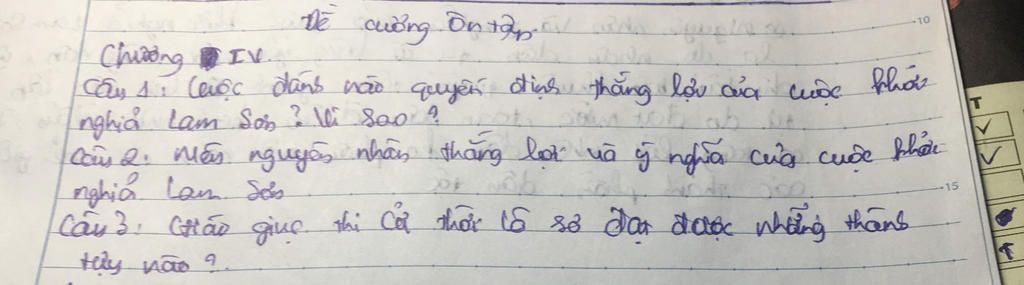 Đề cương Ôn tập
Chương IV
Câu 1: Cuộc đánh nào quyết định thắng lợi của cuộc khởi
nghĩa Lam Sơn? Vì sao?
Câu 2. Nêu nguyên nhân thắng lợi và ý nghĩa của cuộc khởi
nghĩa Lam Sơn
Câu 3: Giáo giục thi cử thời Lê sơ đạt được những thành
tựu nào?
10
15
T